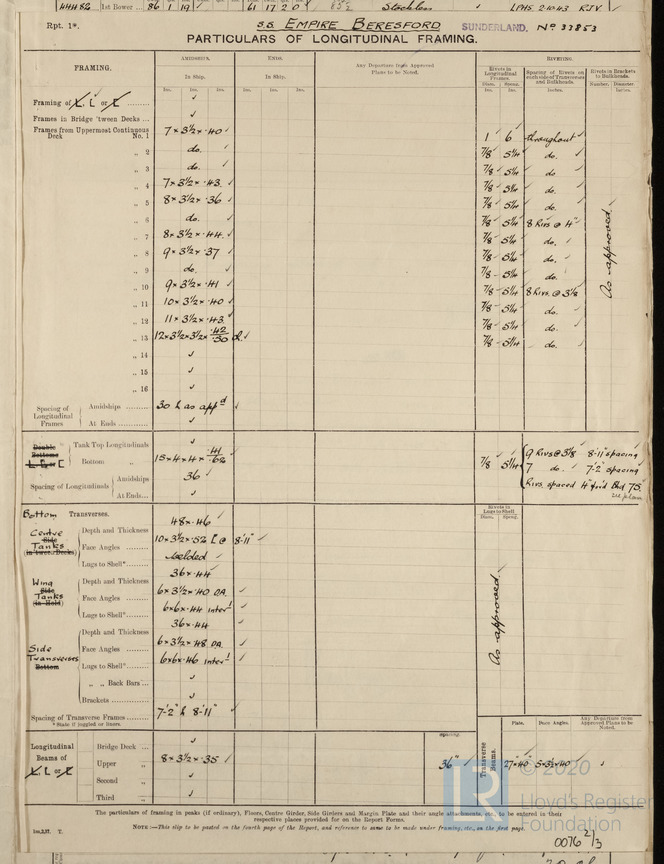 HHH 82 1st Bower ... 86 1 19 61 17 2 0 Stockless LPHS. 2.10.43 RJV
Rpt. 1*. S.S. EMPIRE BERESFORD SUNDERLAND. No. 33853
PARTICULARS OF LONGITUDINAL FRAMING.
FRAMING. AMIDSHIPS. ENDS. Any Departure from Approved Plans to be Noted. RIVETING.
In Ship. In Ship. Rivets in Longitudinal Frames. Spacing of Rivets on each side of Transverses and Bulkheads. Rivets in Brackets to Bulkheads.
Ins. Ins. Ins. Ins. Ins. Ins. Diam. Ins. Speng. Ins. Inches. Number. Diameter Inches.
Framing of L, L or L .........
Frames in Bridge 'tween Decks ...
Frames from Uppermost Continuous Deck No. 1 7 × 3½ × ·40 1 6 throughout
„ 2 do. 7/8 5¼ do.
„ 3 do. 7/8 5¼ do
„ 4 7 × 3½ × ·43 7/8 5¼ do.
„ 5 8 × 3½ × ·36 7/8 5¼ do.
„ 6 do. 7/8 5¼ 8 Rivs @ 4"
„ 7 8 × 3½ × ·44 7/8 5¼ do.
„ 8 9 × 3½ × ·37 7/8 5¼ do.
„ 9 do. 7/8 5¼ do.
„ 10 9 × 3½ × ·41 7/8 5¼ 8 Rivs. @ 3½
„ 11 10 × 3½ × ·40 7/8 5¼ do.
„ 12 11 × 3½ × ·43 7/8 5¼ do.
„ 13 12 × 3½ × 3½ × ·42/·50 7/8 5¼ do.
„ 14
„ 15
„ 16
As approved.
Spacing of Longitudinal Frames Amidships ......... 30 & as appd
At Ends ......
Double Bottoms Tank Top Longitudinals
L, L or [ Bottom „ 15 × 4 × 4 × 7/8 5¼ 9 Rivs @ 3⅜ 8-11" spacing
7 do. 7-2" spacing
Spacing of Longitudinals Amidships 36 Rivs. spaced 4" Bhd 75
At Ends... see plan
Bottom Transverses. Rivets in Lugs to Shell
Diam. Speng.
Centre Side Tanks (in 'tween Decks) Depth and Thickness 48 × ·46
Face Angles ......... 10 × 3½ × ·52 [ @ 8-11"
Lugs to Shell* ...... welded
Wing Side Tanks (in Hold) Depth and Thickness 36 × ·44
Face Angles ......... 6 × 3½ × ·40 DA.
Lugs to Shell* ...... 6×6× ·44 inter l
Side Transverses Bottom Depth and Thickness 36 × ·44
Face Angles ......... 6 × 3½ × ·48 DA
Lugs to Shell* ...... 6×6× ·46 inter l
„ „ Back Bars ...
Brackets .........
As approved.
Spacing of Transverse Frames ...... 7-2" & 8-11"
* State if joggled or liners.
Plate. Face Angles. Any Departure from Approved Plans to be Noted.
Longitudinal Beams of L, L or L Bridge Deck ... Spacing. Transverse Beams.
Upper „ 8 × 3½ × ·35 36" 27"×·40 5×3½×·40
Second „
Third „
The particulars of framing in peaks (if ordinary), Floors, Centre Girder, Side Girders and Margin Plate and their angle attachments, &c., to be entered in their
respective places provided for on the Report Forms.
NOTE:—This slip to be pasted on the fourth page of the Report, and reference to same to be made under framing, etc., on the first page.
1m,2,37. T.
0076 2/3
LR
© 2020
Lloyd's Register
Foundation